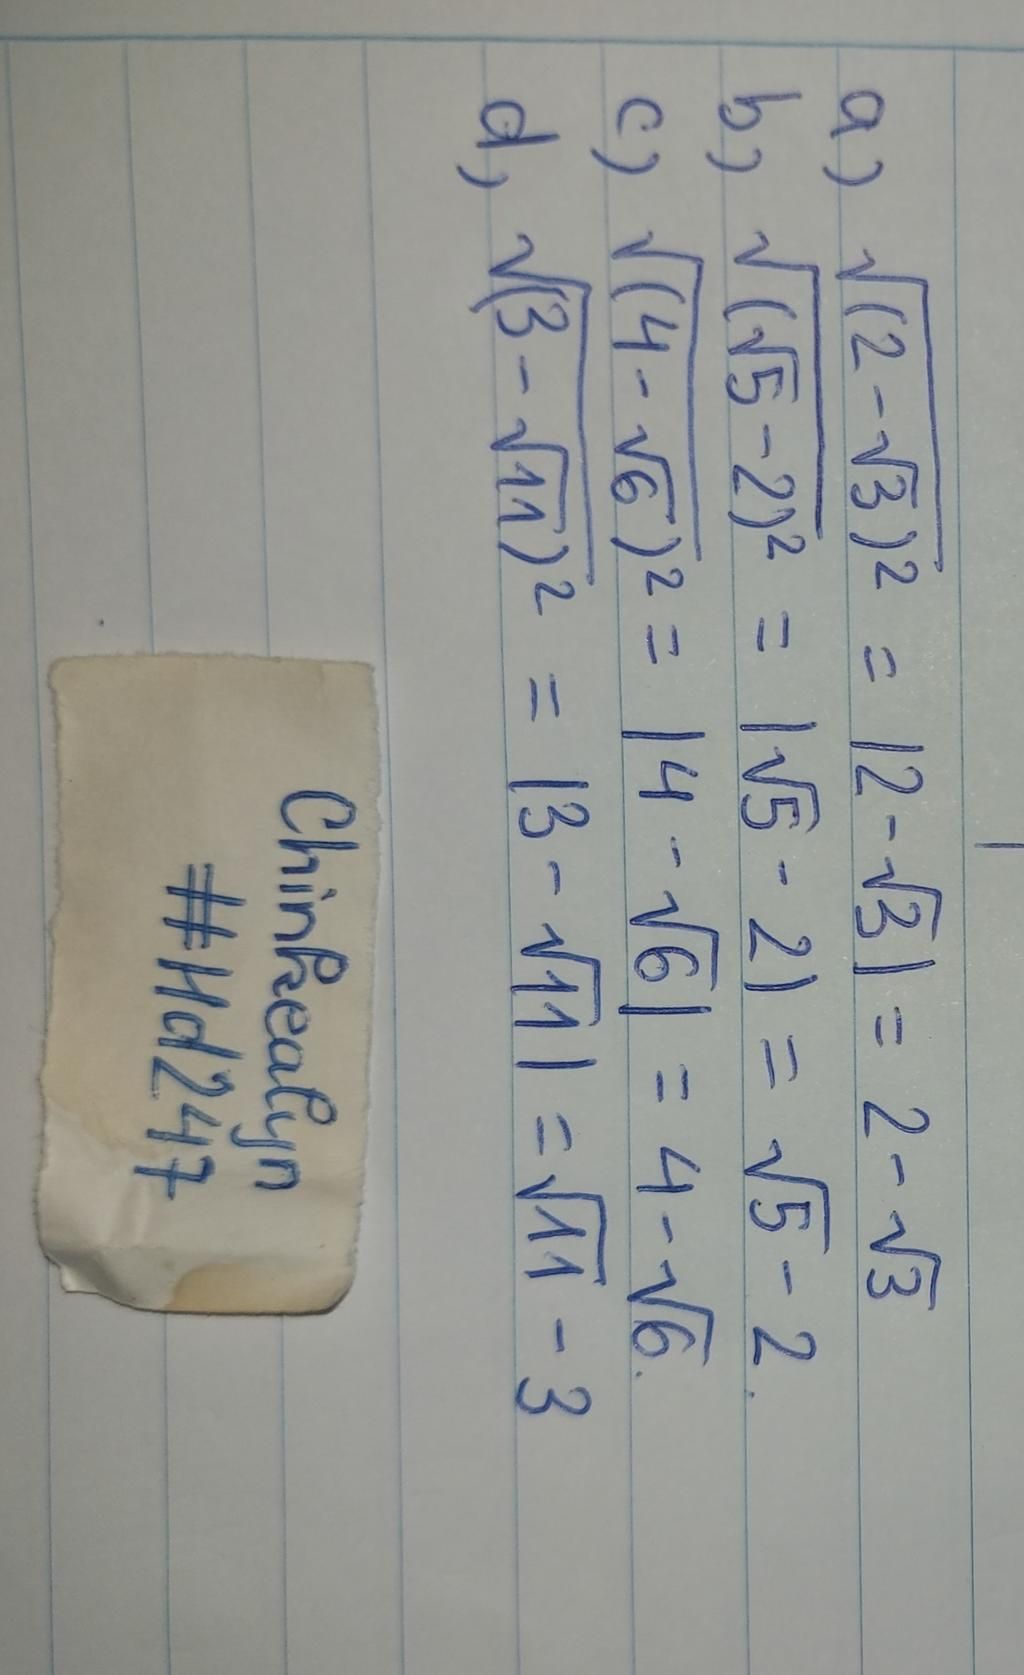 a) √(2-√3)² = |2-√3| = 2-√3
b) √(√5-2)² = |√5-2| = √5-2.
c) √(4-√6)² = |4-√6| = 4-√6.
d) √(3-√11)² = |3-√11| = √11-3
Chinkealyn
#Hd247